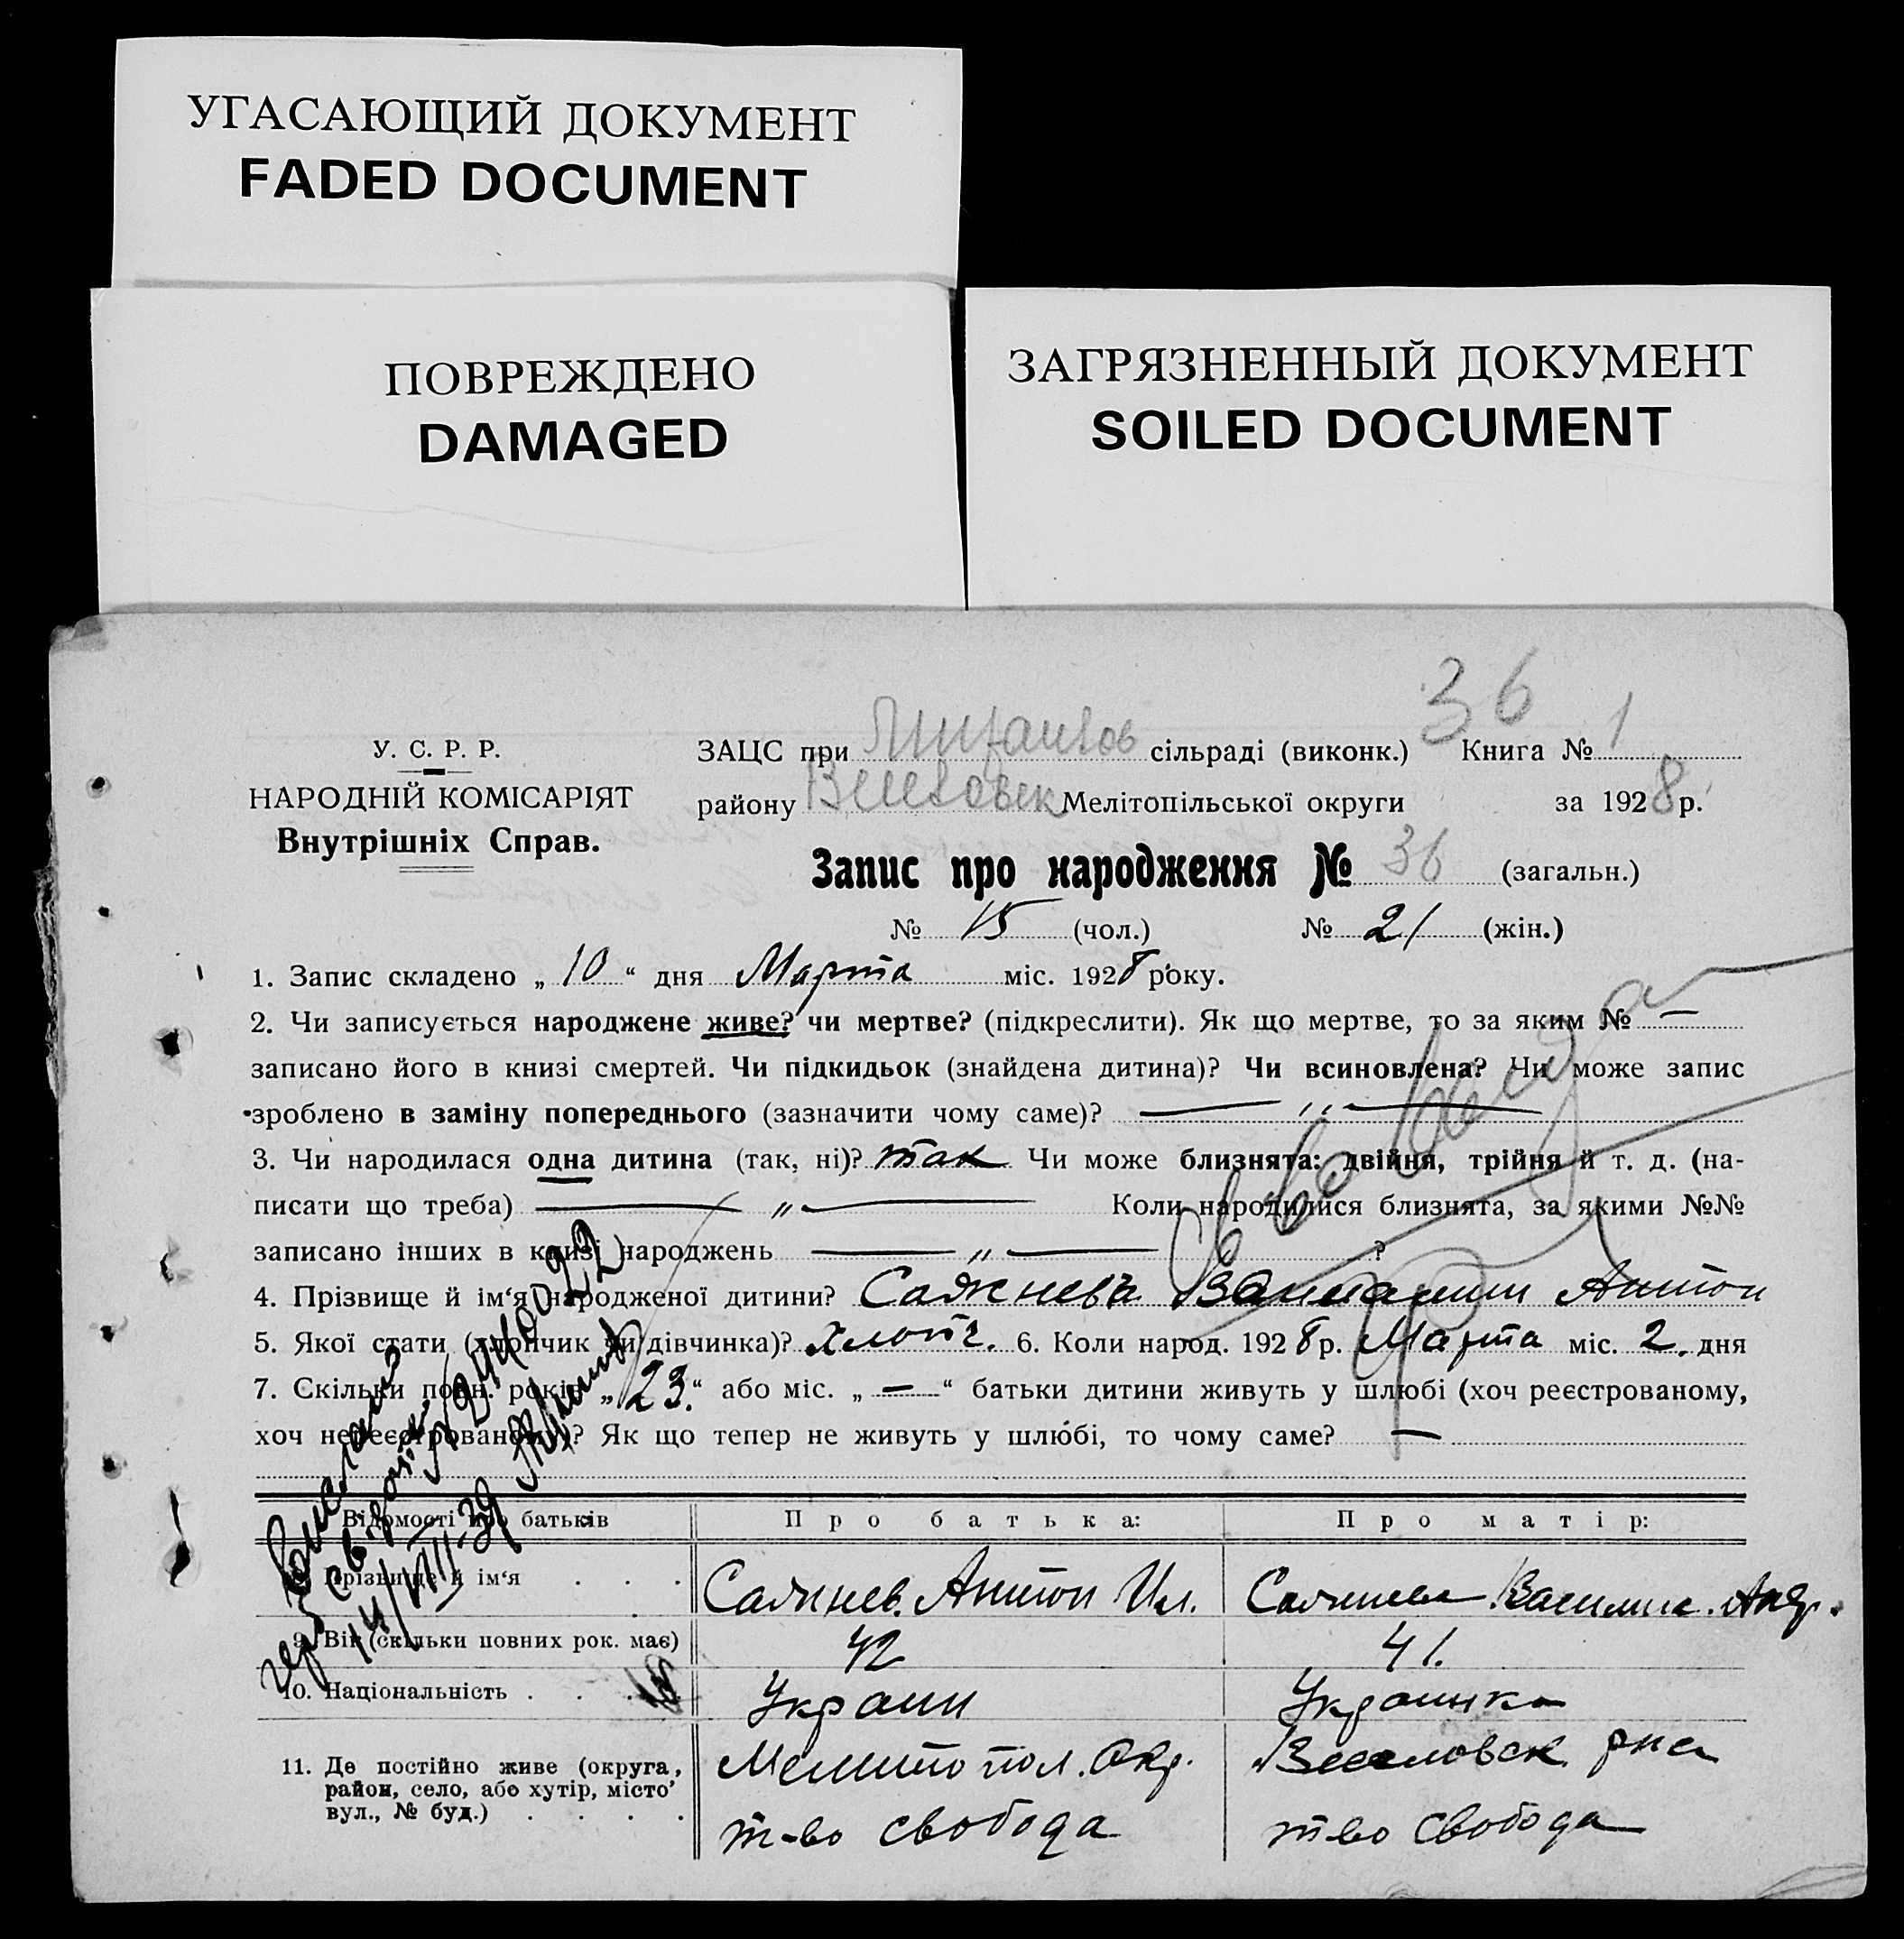 УГАСАЮЩИЙ ДОКУМЕНТ
FADED DOCUMENT
ПОВРЕЖДЕНО
DAMAGED
ЗАГРЯЗНЕННЫЙ ДОКУМЕНТ
SOILED DOCUMENT
36
У. С. Р. Р.
НАРОДНІЙ КОМІСАРІЯТ
Внутрішніх Справ.
ЗАЦС при сільраді (виконк.) Книга № 1
району Мелітопільської округи за 1928 р.
Запис про народження № 36 (загальн.)
№ 15 (чол.) № 21 (жін.)
1. Запис складено „ 10 “ дня Марта міс. 1928 року.
2. Чи записується народжене живе? чи мертве? (підкреслити). Як що мертве, то за яким № —
записано його в книзі смертей. Чи підкидьок (знайдена дитина)? Чи всиновлена? Чи може запис
зроблено в заміну попереднього (зазначити чому саме)? — „ —
3. Чи народилася одна дитина (так, ні)? так Чи може близнята: двійня, трійня й т. д. (на-
писати що треба) — „ — Коли народилися близнята, за якими №№
записано інших в книзі народжень — „ — ?
4. Прізвище й ім‘я народженої дитини? Антон
5. Якої стати (хлопчик чи дівчинка)? Хлопч. 6. Коли народ. 1928 р. Марта міс. 2. дня
7. Скільки повн. років „ 23. “ або міс. „ — “ батьки дитини живуть у шлюбі (хоч реєстрованому,
хоч нереєстрованому)? Як що тепер не живуть у шлюбі, то чому саме? —
Свобода
Відомості про батьків Про батька: Про матір:
8. Прізвище й ім‘я . . . Антон Ил. Василина Андр.
9. Вік (скільки повних рок. має) 42 41.
10. Національність . . . Украин Украинка
11. Де постійно живе (округа, район, село, або хутір, місто вул., № буд.) . . . .
Мелитопол. Окр. Веселовск рна
т-во свобода т-во Свобода